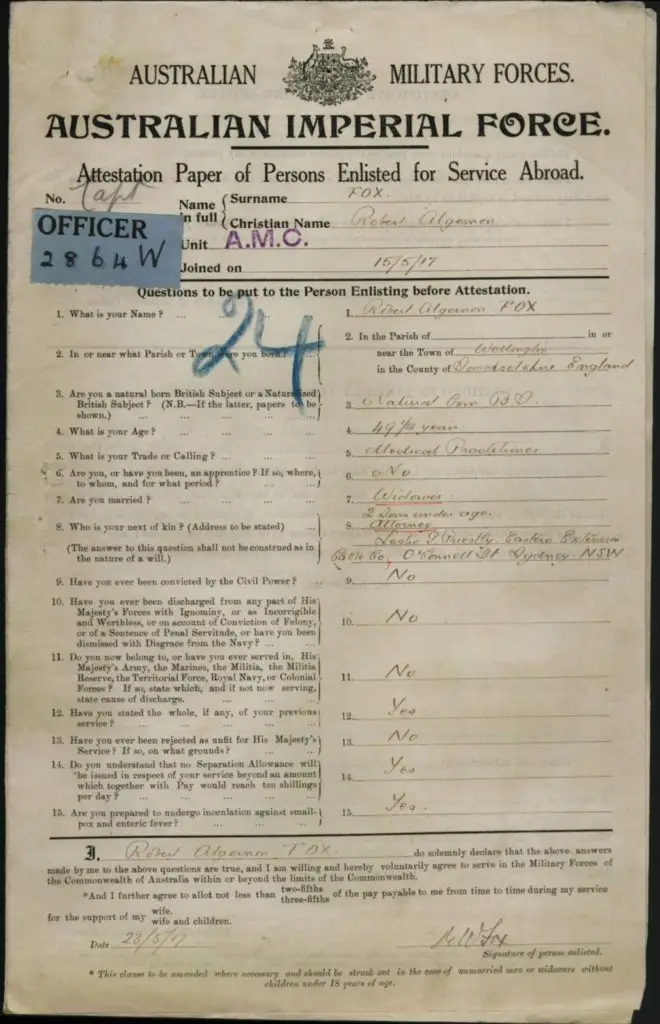 AUSTRALIAN MILITARY FORCES.
AUSTRALIAN IMPERIAL FORCE.
Attestation Paper of Persons Enlisted for Service Abroad.
No. Capt
Name in full { Surname FOX.
Christian Name Robert Algernon
OFFICER
2864W
Unit A.M.C.
Joined on 15/5/17
Questions to be put to the Person Enlisting before Attestation.
24
1. What is your Name? ... ... 1. Robert Algernon FOX
2. In or near what Parish or Town were you born? ... 2. In the Parish of in or
near the Town of Wellington
in the County of England
3. Are you a natural born British Subject or a Naturalized
British Subject? (N.B.—If the latter, papers to be
shown.) ... ... ... ... 3. Natural born
4. What is your Age? ... ... ... ... 4. years
5. What is your Trade or Calling? ... ... ... 5. Medical Practitioner
6. Are you, or have you been, an apprentice? If so, where,
to whom, and for what period? ... ... 6. No
7. Are you married? ... ... ... ... 7. Widower
2 sons under age.
8. Who is your next of kin? (Address to be stated) ... 8. Attorney
Leslie Eastern Extension
(The answer to this question shall not be construed as in
the nature of a will.) Cable Co, O'Connell St. Sydney. NSW
9. Have you ever been convicted by the Civil Power? ... 9. No
10. Have you ever been discharged from any part of His
Majesty's Forces with Ignominy, or as Incorrigible
and Worthless, or on account of Conviction of Felony,
or of a Sentence of Penal Servitude, or have you been
dismissed with Disgrace from the Navy? ... ... 10. No
11. Do you now belong to, or have you ever served in, His
Majesty's Army, the Marines, the Militia, the Militia
Reserve, the Territorial Force, Royal Navy, or Colonial
Forces? If so, state which, and if not now serving,
state cause of discharge. ... ... ... 11. No
12. Have you stated the whole, if any, of your previous
service? ... ... ... ... 12. Yes
13. Have you ever been rejected as unfit for His Majesty's
Service? If so, on what grounds? ... ... 13. No
14. Do you understand that no Separation Allowance will
be issued in respect of your service beyond an amount
which together with Pay would reach ten shillings
per day? ... ... ... ... 14. Yes
15. Are you prepared to undergo inoculation against small-
pox and enteric fever? ... ... ... 15. Yes.
I, Robert Algernon FOX. do solemnly declare that the above answers
made by me to the above questions are true, and I am willing and hereby voluntarily agree to serve in the Military Forces of
the Commonwealth of Australia within or beyond the limits of the Commonwealth.
*And I further agree to allot not less than two-fifths three-fifths of the pay payable to me from time to time during my service
for the support of my wife. wife and children.
Date 23/5/17 Fox
Signature of person enlisted.
* This clause to be amended where necessary and should be struck out in the case of unmarried men or widowers without
children under 18 years of age.